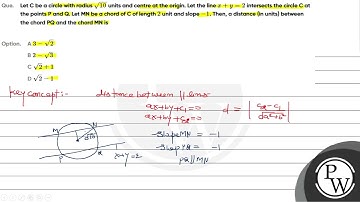 Que. Let C be a circle with radius √10 units and centre at the origin. Let the line x + y = 2 intersects the circle C at
the points P and Q. Let MN be a chord of C of length 2 unit and slope −1. Then, a distance (in units) between
the chord PQ and the chord MN is
Option. A 3 − √2
B 2 − √3
C √2 + 1
D √2 − 1
Key concept:- distance between || lines
ax+by+c₁=0
ax+by+c₂=0
d = |c₂-c₁ / √a²+b²|
M N
P Q
x+y=2
slope MN = -1
slope PQ = -1
PQ || MN
PW